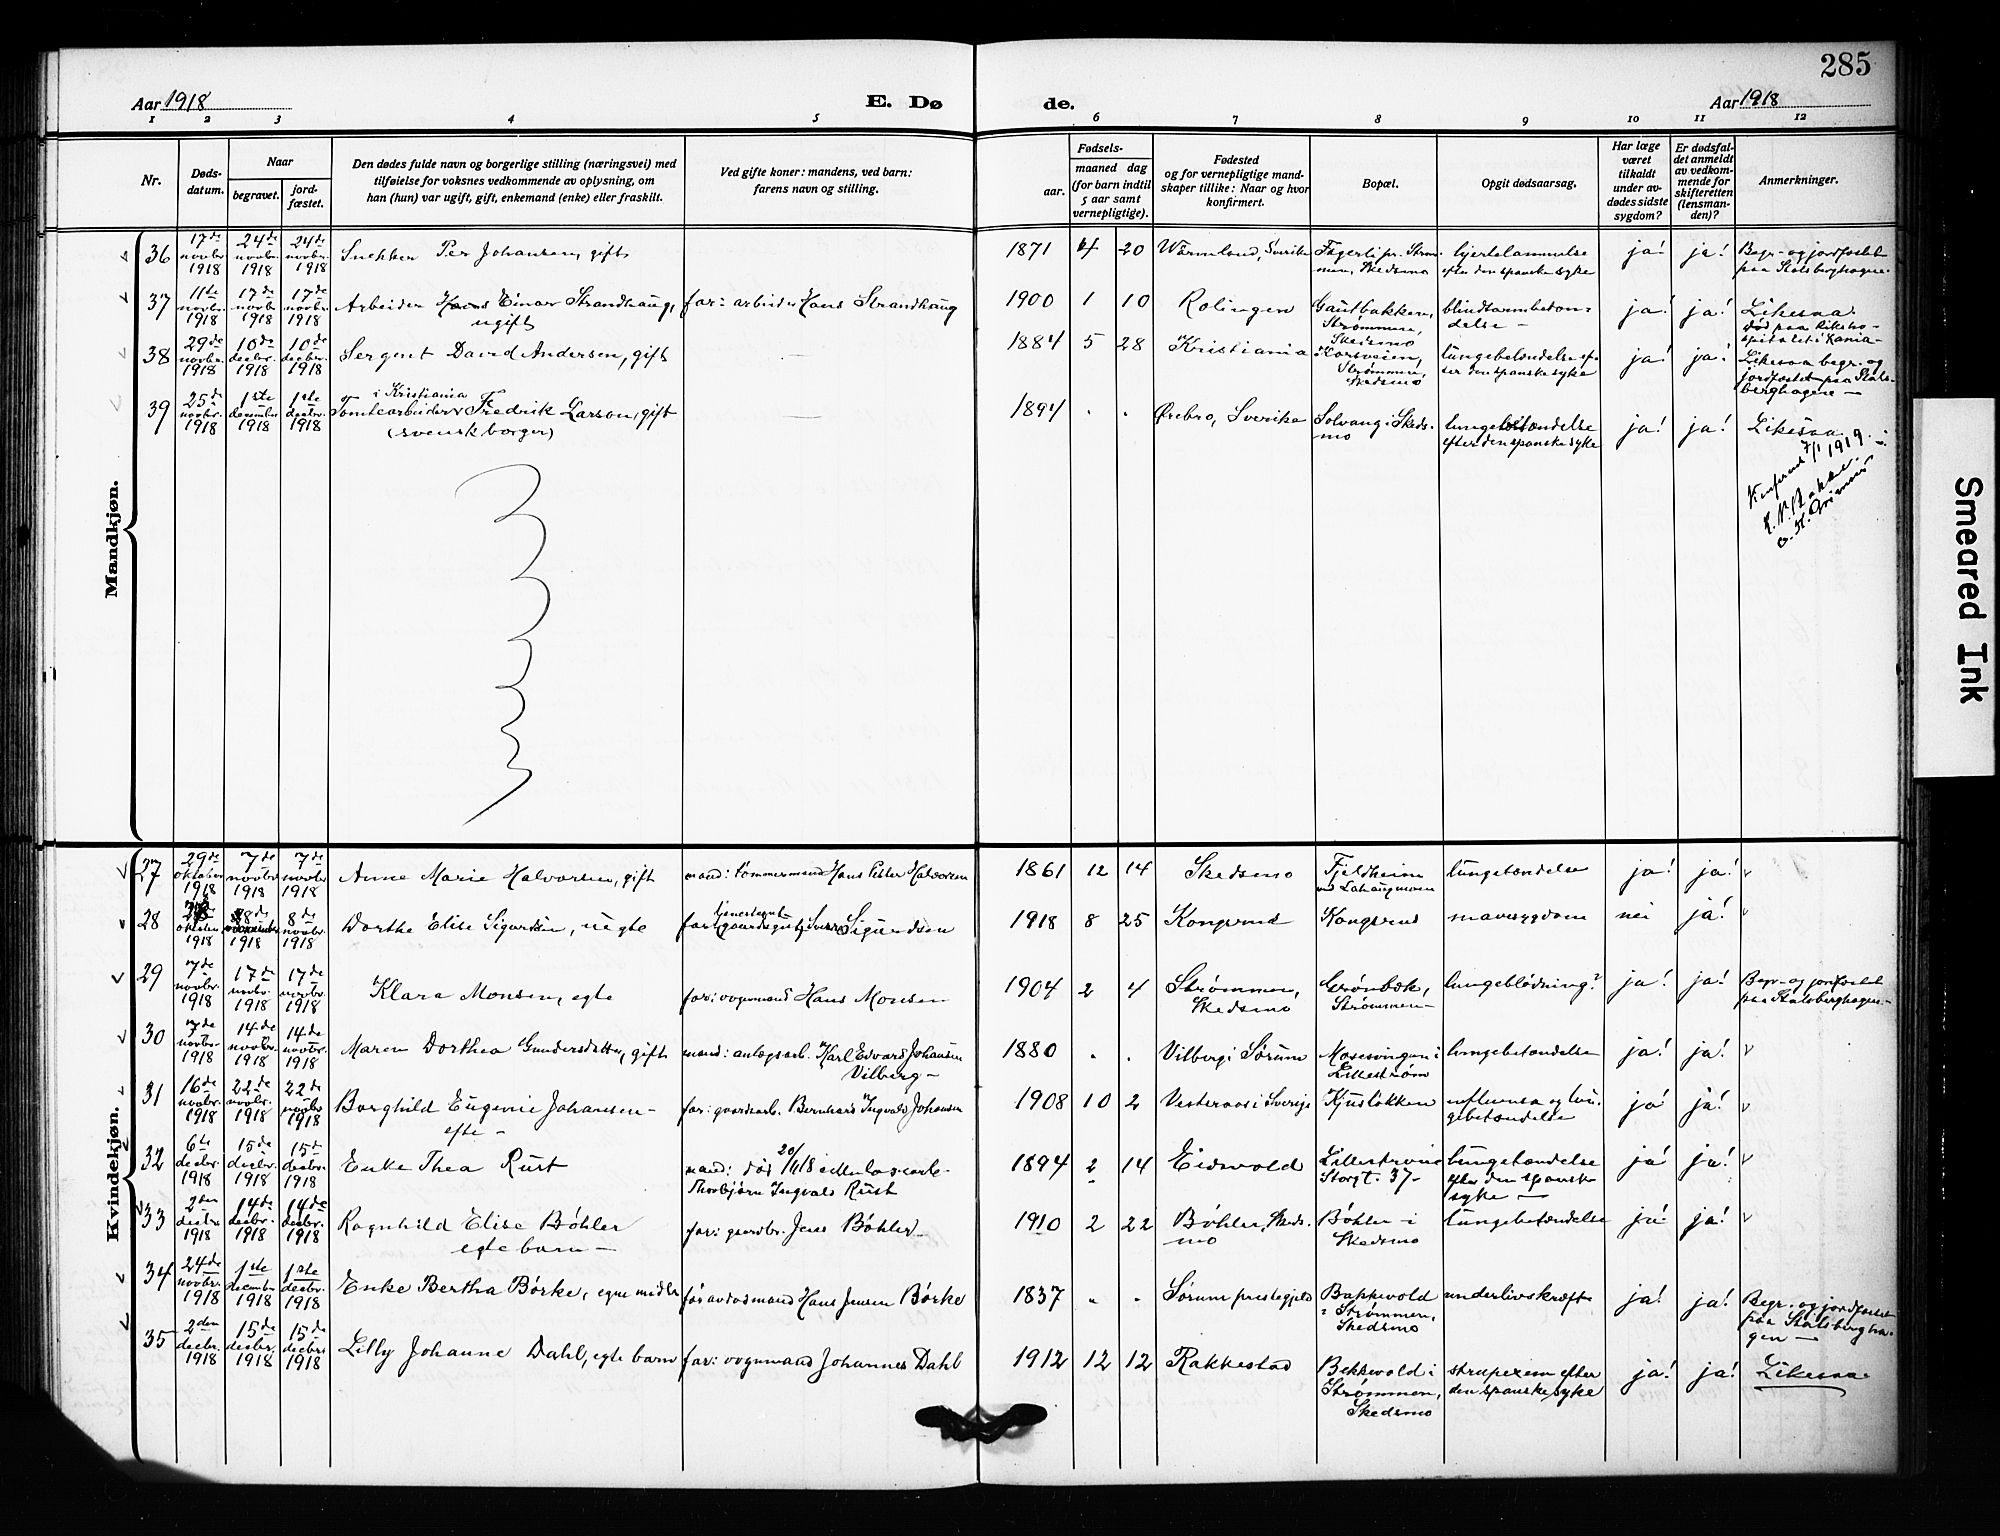 285
Aar 1918
E. Dø
de.
Aar 1918
1 2 3 4 5 6 7 8 9 10 11 12
Nr.
Døds-
datum.
Naar
begravet.
jord-
fæstet.
Den dødes fulde navn og borgerlige stilling (næringsvei) med
tilføielse for voksnes vedkommende av oplysning, om
han (hun) var ugift, gift, enkemand (enke) eller fraskilt.
Ved gifte koner: mandens, ved barn:
farens navn og stilling.
Fødsels-
aar.
maaned dag
(for barn indtil
5 aar samt
vernepligtige).
Fødested
og for vernepligtige mand-
skaper tillike: Naar og hvor
konfirmert.
Bopæl.
Opgit dødsaarsag.
Har læge
været
tilkaldt
under av-
dødes sidste
sygdom?
Er dødsfal-
det anmeldt
av vedkom-
mende for
skifteretten
(lensman-
den)?
Anmerkninger.
Mandkjøn.
36
17de novbr. 1918
24de novbr. 1918
24de novbr. 1918
Snekker Per Johansen, gift
1871 4 20
Wärmland, Sverike
Fagerli pr. Strøm-
men, Skedsmo
hjertelammelse
efter den spanske syke
ja! ja!
Begr.- og jordfæstet
paa Stalsberghagen-
37
11te novbr. 1918
17de novbr. 1918
17de novbr. 1918
Arbeider Hans Einar Strandhaug,
ugift
far: arbeider Hans Strandhaug
1900 1 10
Rælingen
Gautbakken,
Strømmen,
Skedsmo
blindtarmbeten-
delse -
ja! ja!
Likesaa.
død paa Riksho-
spitalet i Kania-
38
29de novbr. 1918
10de decbr. 1918
10de decbr. 1918
Sergent David Andersen, gift
1884 5 28
Kristiania
Korsveien,
Strømmen,
Skedsmo
lungebetændelse ef-
ter den spanske syke
ja! ja!
Likesaa begr. og
jordfæstet paa Stals-
berghagen -
39
25de novbr. 1918
1ste december 1918
1ste decbr. 1918
i Kristiania
Tomtearbeider Fredrik Larson, gift
(svensk borger)
1894 " "
Ørebro, Sverike
Solvang i Skeds-
mo
lungebetændelse
efter den spanske syke
ja! ja!
Likesaa
7/1 1919.
Kvindekjøn.
27
29de oktober 1918
7de novbr 1918
7de novbr. 1918
Anne Marie Halvorsen, gift
mand: tømmermand Hans Peter Halvorsen
1861 12 14
Skedsmo
Fjeldheim
lungetændelse
ja! ja! "
28
oktober 1918
8de november 1918
8de novbr. 1918
Dorthe Elise Sigurdsen, uegte
tjenestegut
far: gaardsgut Sverre Sigurdsen
1918 8 25
Kongsrud
Kongsrud
mavesygdom
nei ja! "
29
7de novbr. 1918
17de novbr. 1918
17de novbr. 1918
Klara Monsen, egte
far: vognmand Hans Monsen
1904 2 4
Strømmen,
Skedsmo
Grønbæk,
Strømmen-
lungeblødning?
ja! ja!
Begr.- og jordfæstet
paa Stalsberghagen-
30
7de novbr. 1918
14de novbr. 1918
14de novbr. 1918
Maren Dorthea Gundersdatter, gift
mand: anlægsarb. Karl Edvard Johansen
Vilberg-
1880 " "
Vilberg i Sørum
Mosesvingen i
Lillestrøm
lungebetændelse
ja! ja! "
31
16de novbr. 1918
22de novbr. 1918
22de novbr 1918
Borghild Eugenie Johansen-
egte -
far: gaardsarb. Bernhard Ingvald Johansen
1908 10 2
Vesteraas i Sverige
Kjusløkken
influensa og lun-
gebetændelse
ja! ja! "
32
6te decbr. 1918
15de decbr. 1918
15de decbr. 1918
Enke Thea Rust
mand: død 20/11 18 cellulosearb-
Thorbjørn Ingvald Rust
1894 2 14
Eidsvold
Lillestrøm
Storgt. 37-
lungetændelse
efter den spanske
syke -
ja! ja! "
33
2den decbr. 1918
14de decbr. 1918
14de decbr. 1918
Ragnhild Elise Bøhler
egte barn -
far: gaardbr. Jens Bøhler-
1910 2 22
Bøhler, Skeds-
mo
Bøhler i
Skedsmo
lungebetændelse
ja! ja! "
34
24de novbr. 1918
1ste december 1918
1ste decbr. 1918
Enke Bertha Børke, egne midler
før avdøs mand Hans Jensen Børke
1837 " "
Sørum prestegjeld
Bakkevold
i Strømmen,
Skedsmo
underlivskræft
ja! ja!
Begr. og jordfæstet
paa Stalsbergha-
gen -
35
2den decbr. 1918
15de decbr. 1918
15de decbr 1918
Lilly Johanne Dahl, egte barn
far: vognmand Johannes Dahl
1912 12 12
Rakkestad
Bekkevold i
Strømmen,
Skedsmo
strupexem efter
den spanske syke
ja! ja!
Likesaa
Smeared Ink